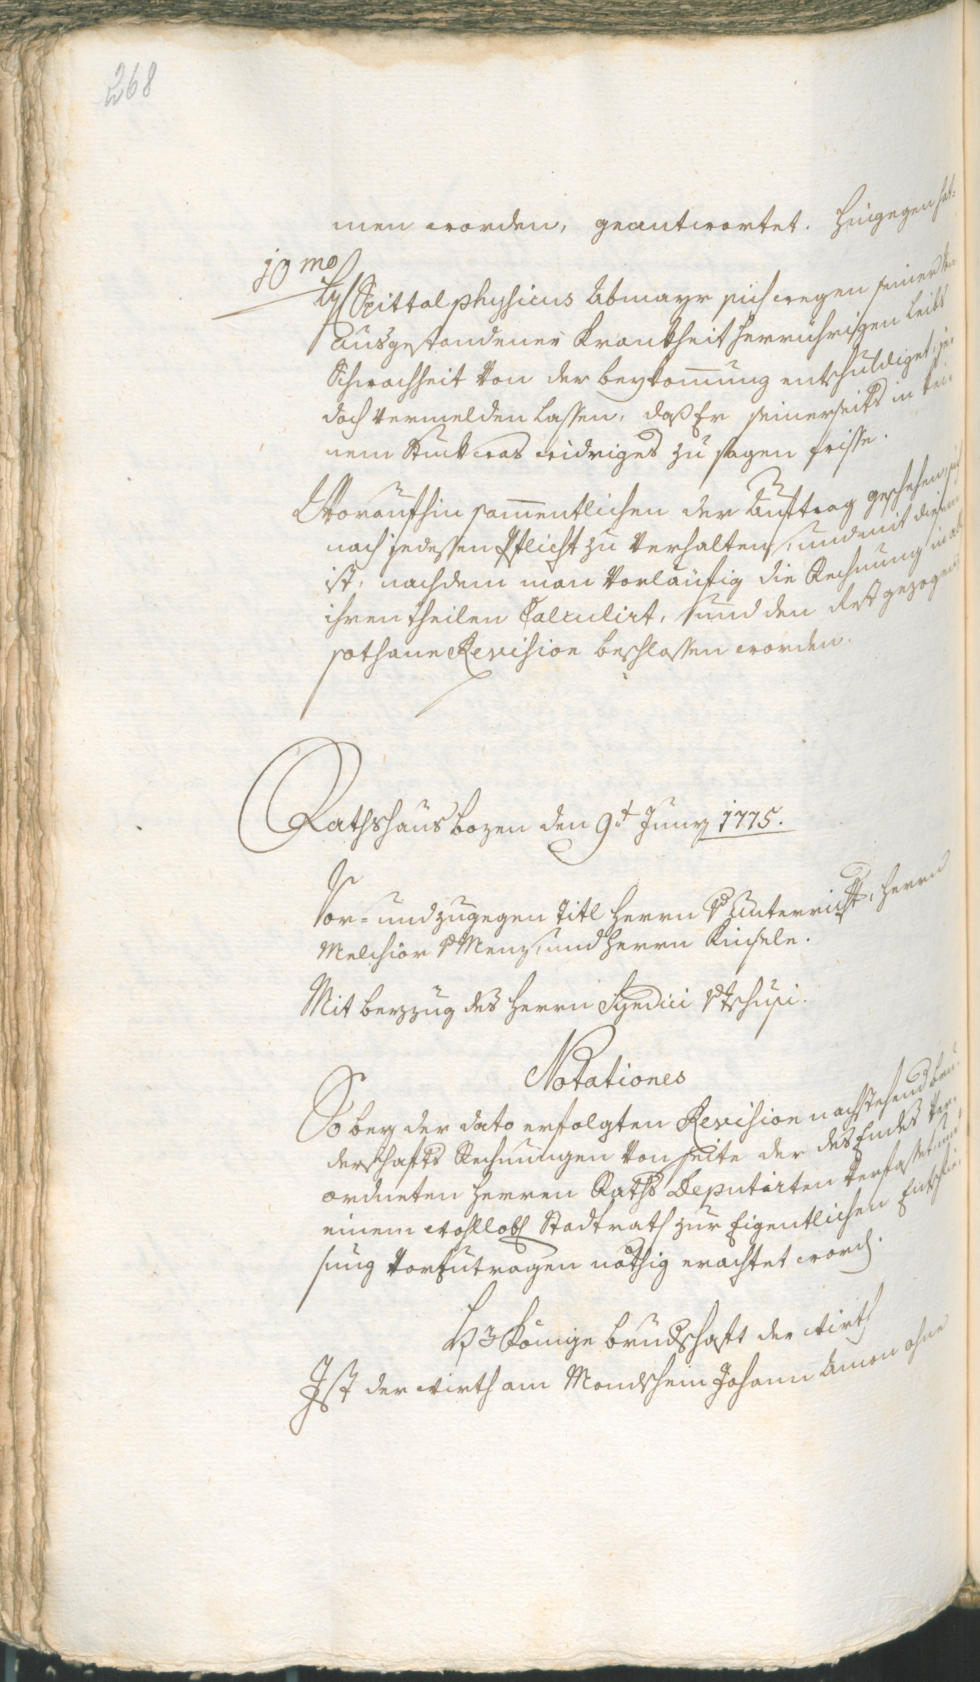 268
men worden, geantwortet. Hingegen hat-
10mo
Spittalphysicus Abmayr sich wegen seiner
ausgestandener Krankheit herrührigen Leibs
Schwachheit von der beykom̅ung entschuldiget, je-
doch vermelden lassen, daß Er seinerseits in kei-
nem Stuck was widriges zu sagen wisse.
Woraufhin sam̅entlichen der Auftrag geschehen, sich
nach jedessen Pflicht zu verhalten, und mit diesem
ist, nachdem man vorläufig die Rechnung in all
ihren theilen Calculirt, und den Rest gezogen
sothane Revision beschlossen worden.
Rathshaus Bozen den 9t Juny 1775.
Vor- und zugegen Titl Herrn v Unterricht, Herrn
Melchior v Menz, und Herrn Kinsele.
Mit beyzug des Herrn Syndici v Tschusi.
Notationes
So bey der dato erfolgten Revision nachstehend bru-
derschafts Rechnungen von seite der des Endes ver-
ordneten Herren Raths Deputirten verfasset und
einem wohllobl Stadtrath zur Eigentlichen Entschlies-
sung vorzutragen nöthig erachtet word.
H 3 Könige brudschaft der wirth
Ist der wirth am Mondschein Johann Amon ohne